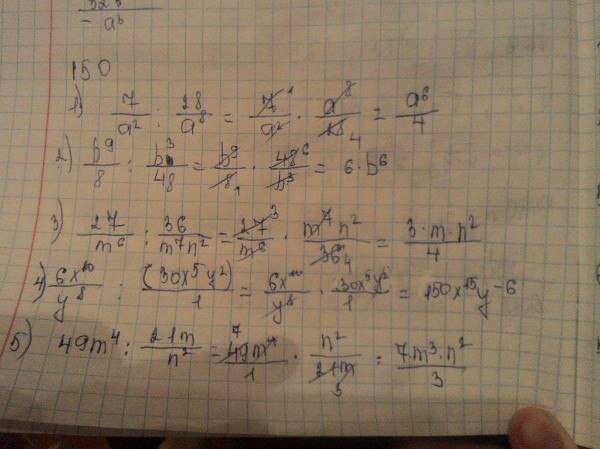 - a⁶
150
1) 7/a² : 28/a⁸ = 7/a² · a⁸/28 4 = a⁶/4
2) b⁹/8 : b³/48 = b⁹/8 1 · 48 6/b³ = 6·b⁶
3) 27/m⁶ : 36/m⁷n² = 27 3/m⁶ · m⁷n²/36 4 = 3·m·n²/4
4) 6x¹⁰/y⁸ : (30x⁵y²)/1 = 6x¹⁰/y⁸ · 30x⁵y²/1 = 150x¹⁵y⁻⁶
5) 49m⁴ : 21m/n² = 7 49m⁴/1 · n²/21m 3 = 7m³·n²/3